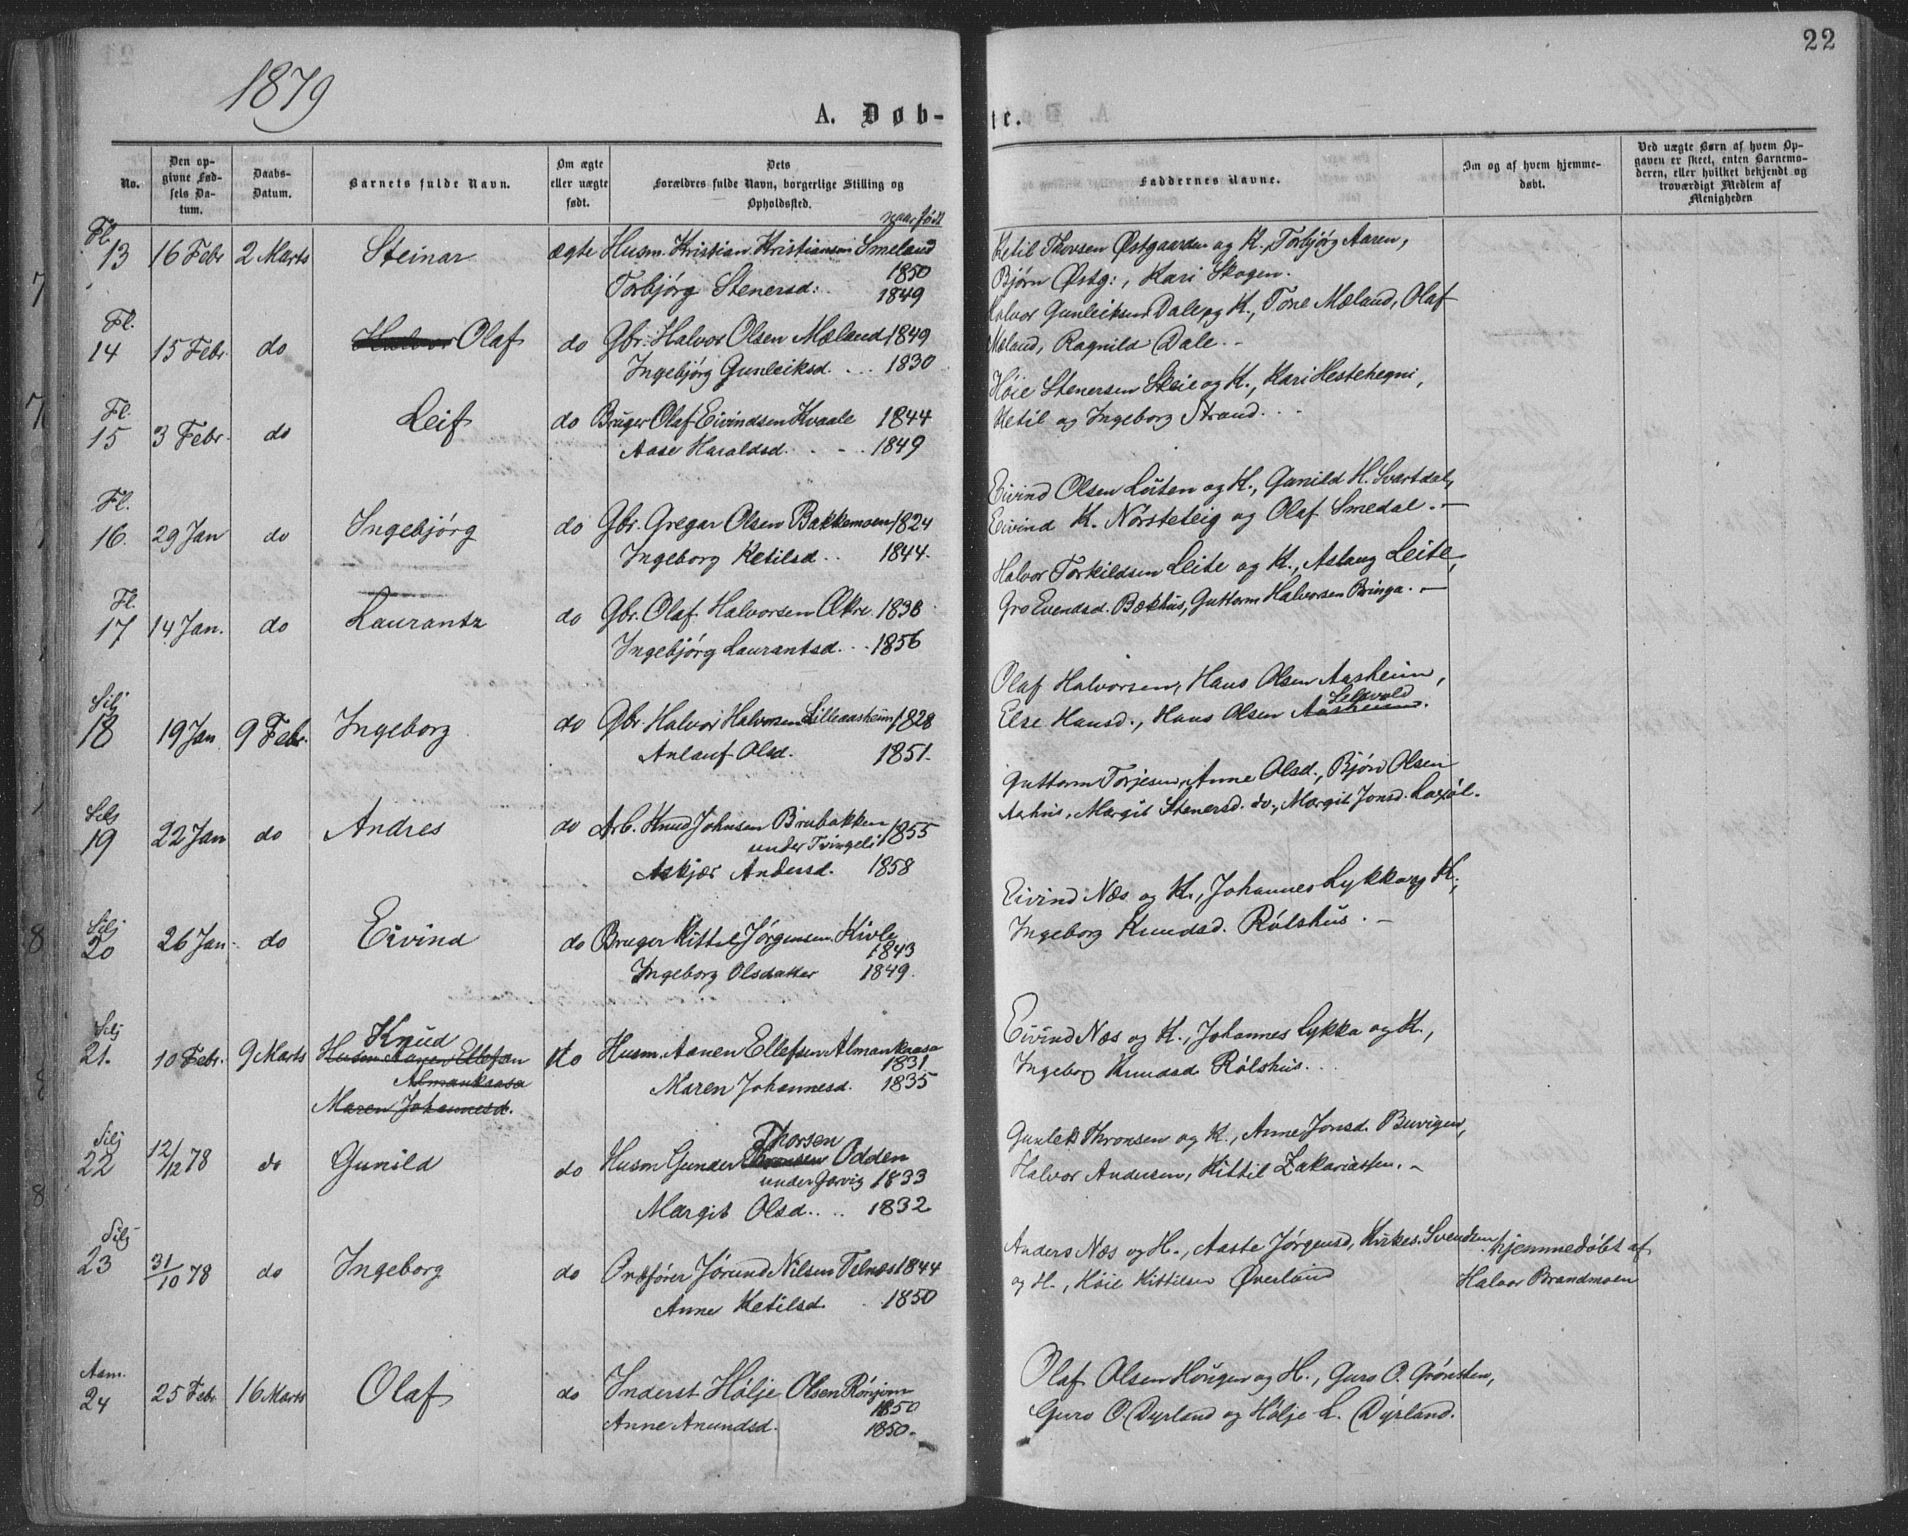 22
1879
A. Døb-
te.
No.
Den op-
givne Fød-
sels Da-
tum.
Daabs-
Datum.
Barnets fulde Navn.
Om ægte
eller uægte
født.
Dets
Forældres fulde Navn, borgerlige Stilling og
Opholdssted.
naar født
Faddernes Navne.
Om og af hvem hjemme-
døbt.
Ved uægte Børn af hvem Op-
gaven er skeet, enten Barnemo-
deren, eller hvilket bekjendt og
troværdigt Medlem af
Menigheden
Fl.
13 16 Febr 2 Marts Steinar ægte Husm. Kristian Kristiansen Smeland
1850
Torbjørg Stenersd: 1849
Ketil Thovsen Østgaarden og K., Torbjørg Aaren,
Bjørn Østg:, Kari Skogen.
Fl.
14 15 Febr. do Halvor Olaf do Gbr. Halvor Olsen Mæland 1849
Ingebjørg Gunleiksd. 1830
Halvor Gunleiksen Dale og K., Tone Mæland, Olaf
Mæland, Ragnild Dale.
Fl.
15 3 Febr. do Leif do Bruger Olaf Eivindsen Kvaale 1844
Aase Haraldsd. 1849
Høie Stenersen Skeie og K., Kari Hestehegni,
Ketil og Ingeborg Strand.
Fl.
16. 29 Jan do Ingebjørg do Gbr. Gregar Olsen Bakkemoen 1824
Ingeborg Ketilsd 1844.
Eivind Olsen Luten og K., Gunild H. Svartdal,
Eivind K. Norsteteig og Olaf Smedal.
Fl.
17 14 Jan. do Laurantz do Gbr. Olaf Halvorsen Økre 1838
Ingebjørg Laurantsd. 1856
Halvor Torkildsen Leite og K., Aslaug Leite,
Gro Evendsd. Bækhus, Guttorm Halvorsen Bringa.
Silj
18 19 Jan 9 Febr. Ingeborg do Gbr. Halvor Halvorsen Lilleaasheim 1828
Anlauf Olsd. 1851.
Olaf Halvorsen, Hans Olsen Aasheim,
Selsvold
Else Hansd., Hans Olsen Aasheim.
Selj
19 22 Jan do Andres do Arb. Knud Johnsen Brubakken
under Tvingeli 1855
Askjær Andersd. 1858
Guttorm Torjesen, Anne Olsd., Bjørn Olsen
Aashus, Margit Stenersd. do, Margit Jonsd.
Silj
20 26 Jan do Eivind do Bruger Kittel Jørgensen Kivle
1843
Ingeborg Olsdatter 1849.
Eivind Næs og K., Johannes Lykka og K.,
Ingeborg Knudsd. Rølshus.
Selj Knud
21. 10 Febr. 9 Marts Husm. Aanen Ellefsen do Husm. Aanen Ellefsen Almankaasa
Almankaasa 1831
Maren Johannesd. Maren Johannesd. 1835
Eivind Næs og K., Johannes Lykka og K.,
Ingeborg Knudsd Rølshus.
Silj Thorsen
22 12/12 78 do Gunild do Husm Gunder Thronsen Odden
under Garvig 1833
Margit Olsd. 1832
Gunlek Thronsen og K., Anne Jonsd. Buvigen,
Halvor Andersen, Kittil Zakariassen.
Silj
23 31/10 78 do Ingeborg do Ordfører Jørund Nilsen Telnæs 1844
Anne Ketilsd. 1850
Anders Næs og H., Aaste Jørgensd, Kirkes. Svendsen
og H., Høie Kittilsen Øverland
Hjemmedøbt af
Halvor Brandmoen
Aam.
24 25 Febr. 16 Marts Olaf do Inderst Hølje Olsen Rønjom
1850
Anne Anundsd. 1850.
Olaf Olsen Hougen og H., Guro O. Grønsten,
Guro O. Dyrland og Hølje L. Dyrland.